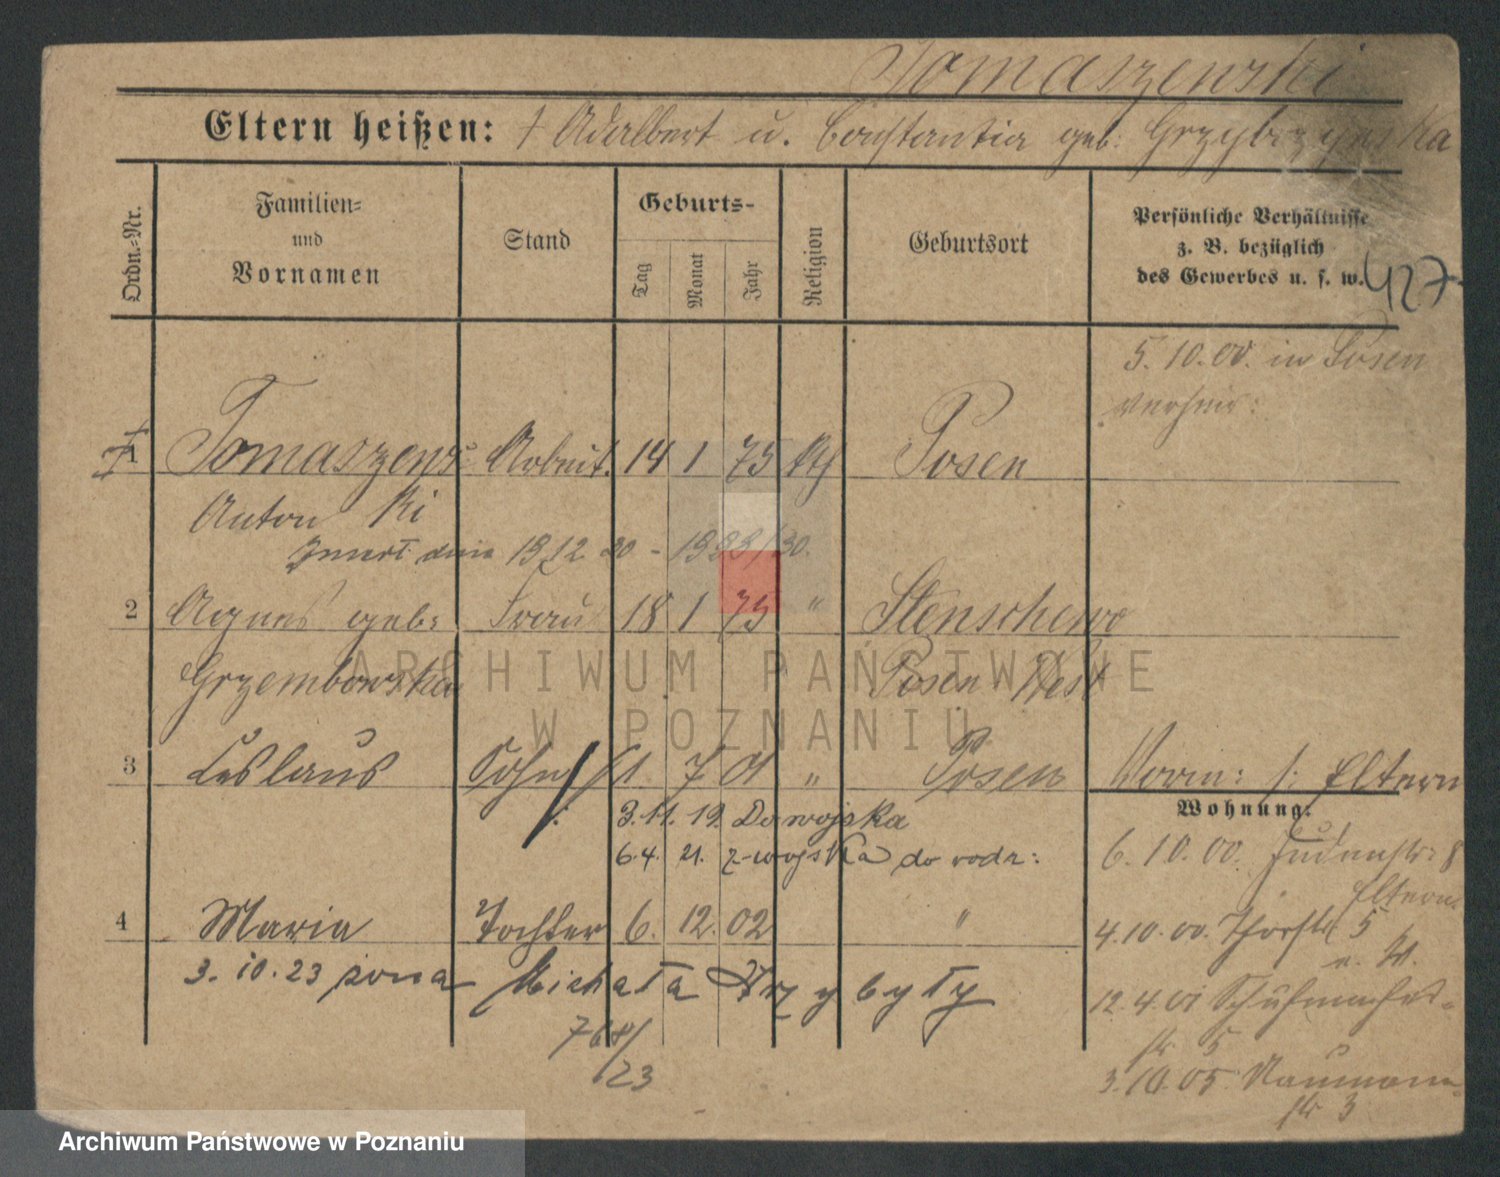 Tomaszewski
Eltern heißen: † Adalbert u. Constantia geb. Grzybzynska
Ordn.-Nr.
Familien-
und
Vornamen
Stand
Geburts-
Tag
Monat
Jahr
Religion
Geburtsort
Persönliche Verhältnisse
z. B. bezüglich
des Gewerbes u. s. w.
427
5.10.00. in Posen
verheir:
1 Tomaszews Arbeit. 14 1 75 kth Posen
Anton ki
zmarł dnia 19 12 30 -
2 Agnes geb: Frau 18 1 75 " Stenschewo
Grzembowska Posen West
3 Leslaus Sohn 11. 7 01 " Posen Vorm: /: Eltern
Wohnung:
3.11.19. Do wojska
6.4. 21. z-wojska do rodz:
6.10.00. Judenstr: 8
Eltern
4 Maria Tochter 6. 12. 02 "
4.10.00. Thorstr 5
3.10.23 żona Michała Przybyły
12.4.01 Schuhmacher-
str 5
768/
23
3.10.05 Naumann
str 3
ARCHIWUM PAŃSTWOWE
W POZNANIU
Archiwum Państwowe w Poznaniu